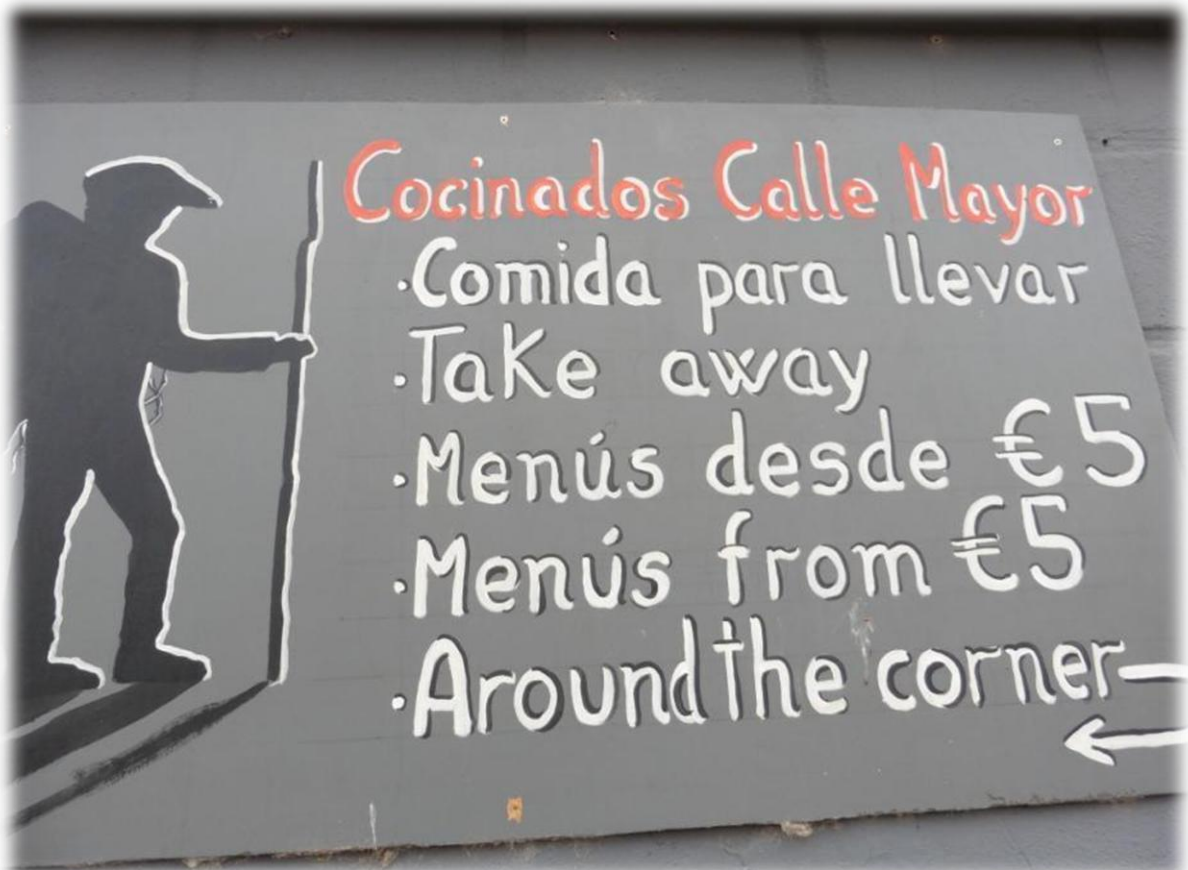 Cocinados Calle Mayor
·Comida para llevar
·Take away
·Menús desde €5
·Menús from €5
·Around the corner